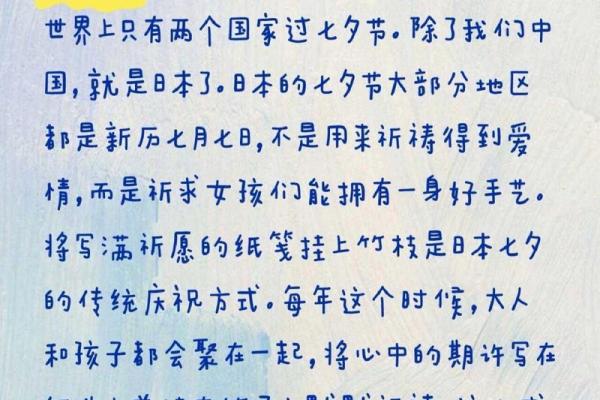 世界上只有两个国家过七夕节。除了我们中
国,就是日本了。日本的七夕节大部分地区
都是新历七月七日,不是用来祈祷得到爱
情,而是祈求女孩们能拥有一身好手艺。
将写满祈愿的纸笺挂上竹枝是日本七夕
的传统庆祝方式。每年这个时候,大人
和孩子都会聚在一起,将心中的期许写在